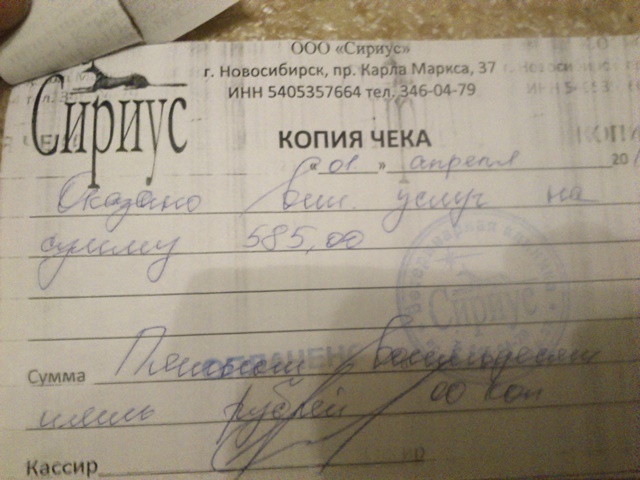 ООО «Сириус»
г. Новосибирск, пр. Карла Маркса, 37
ИНН 5405357664 тел. 346-04-79
Сириус
КОПИЯ ЧЕКА
«01» апреля 201
Оказано вет. услуг на
сумму 585,00
Ветеринарная клиника
Сириус
ОПЛАЧЕНО
Сумма Пятьсот восемьдесят
пять рублей 00 коп
Кассир